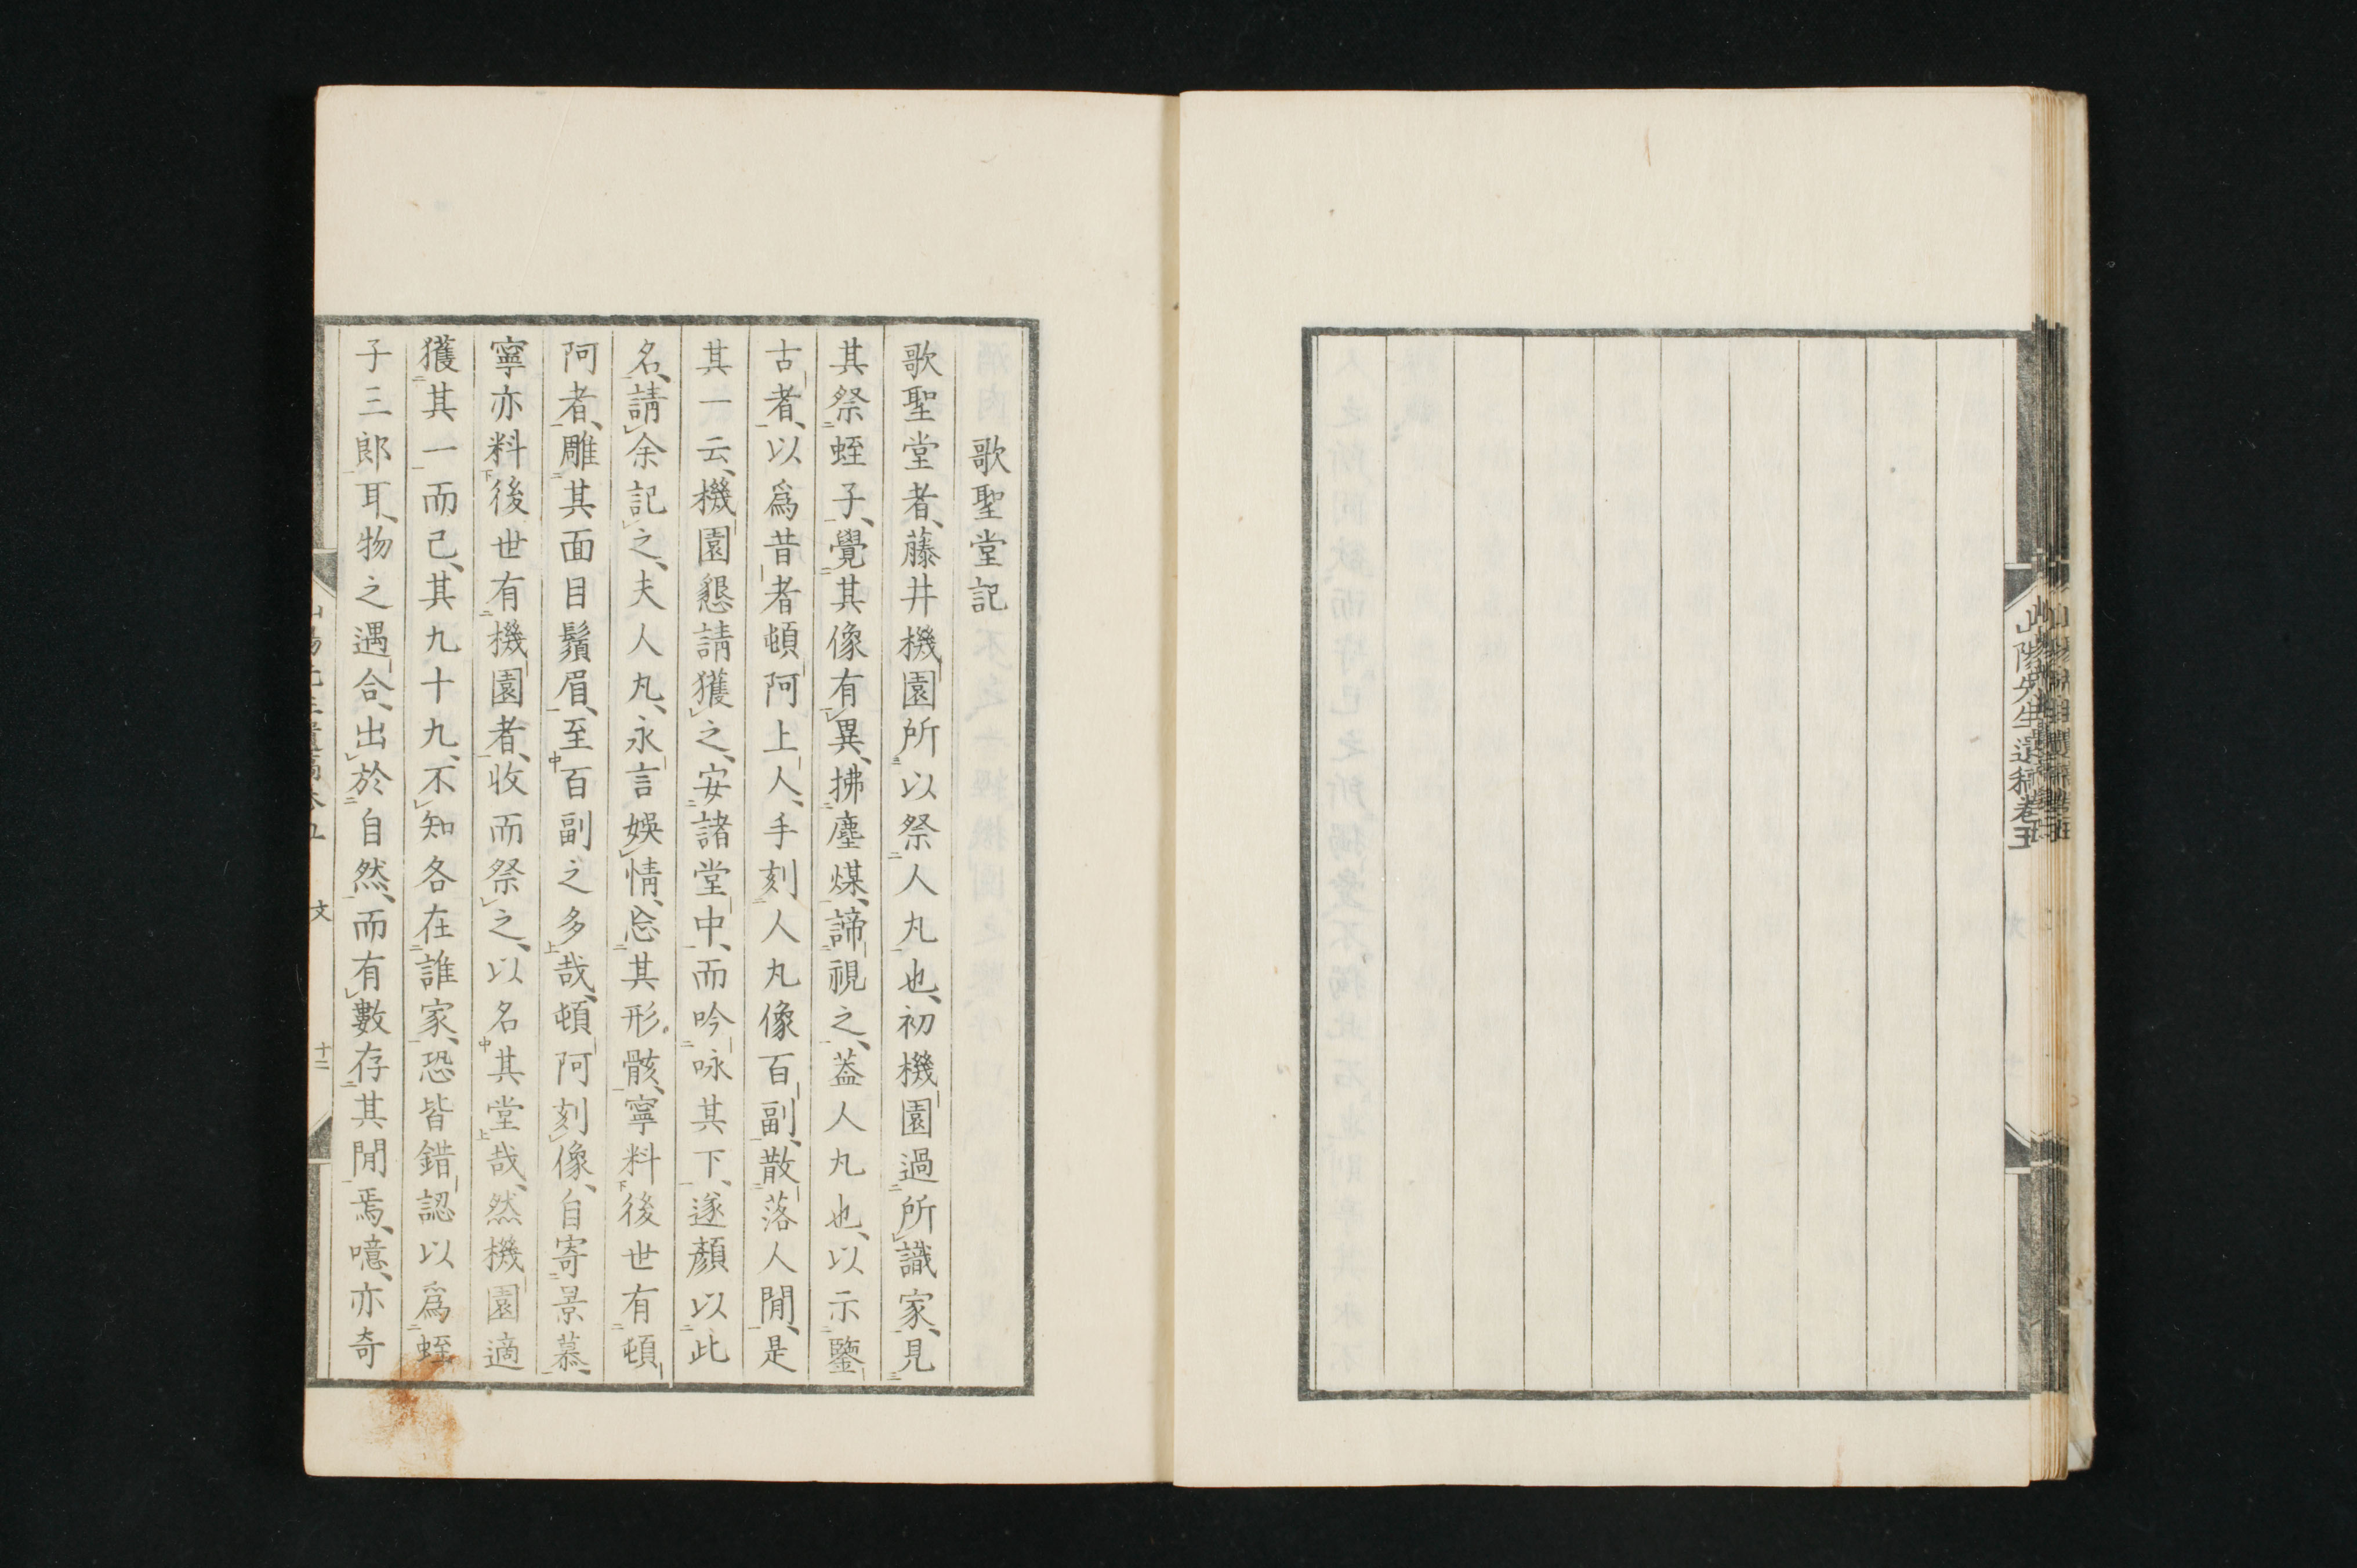 山陽先生遺稿卷五
歌聖堂記
歌聖堂者、藤井機園所以祭人丸也、初機園過所識家、見
其祭蛭子、覺其像有異、拂塵煤、諦視之、蓋人丸也、以示鑒
古者、以爲昔者頓阿上人、手刻人丸像百副、散落人閒、是
其一云、機園懇請獲之、安諸堂中、而吟咏其下、遂顏以此
名、請余記之、夫人丸、永言娛情、忘其形骸、寧料後世有頓
阿者、雕其面目鬚眉、至百副之多哉、頓阿刻像、自寄景慕、
寧亦料後世有機園者、收而祭之、以名其堂哉、然機園適
獲其一而已、其九十九、不知各在誰家、恐皆錯認以爲蛭
子三郎耳、物之遇合、出於自然、而有數存其閒焉、噫、亦奇
文
十二